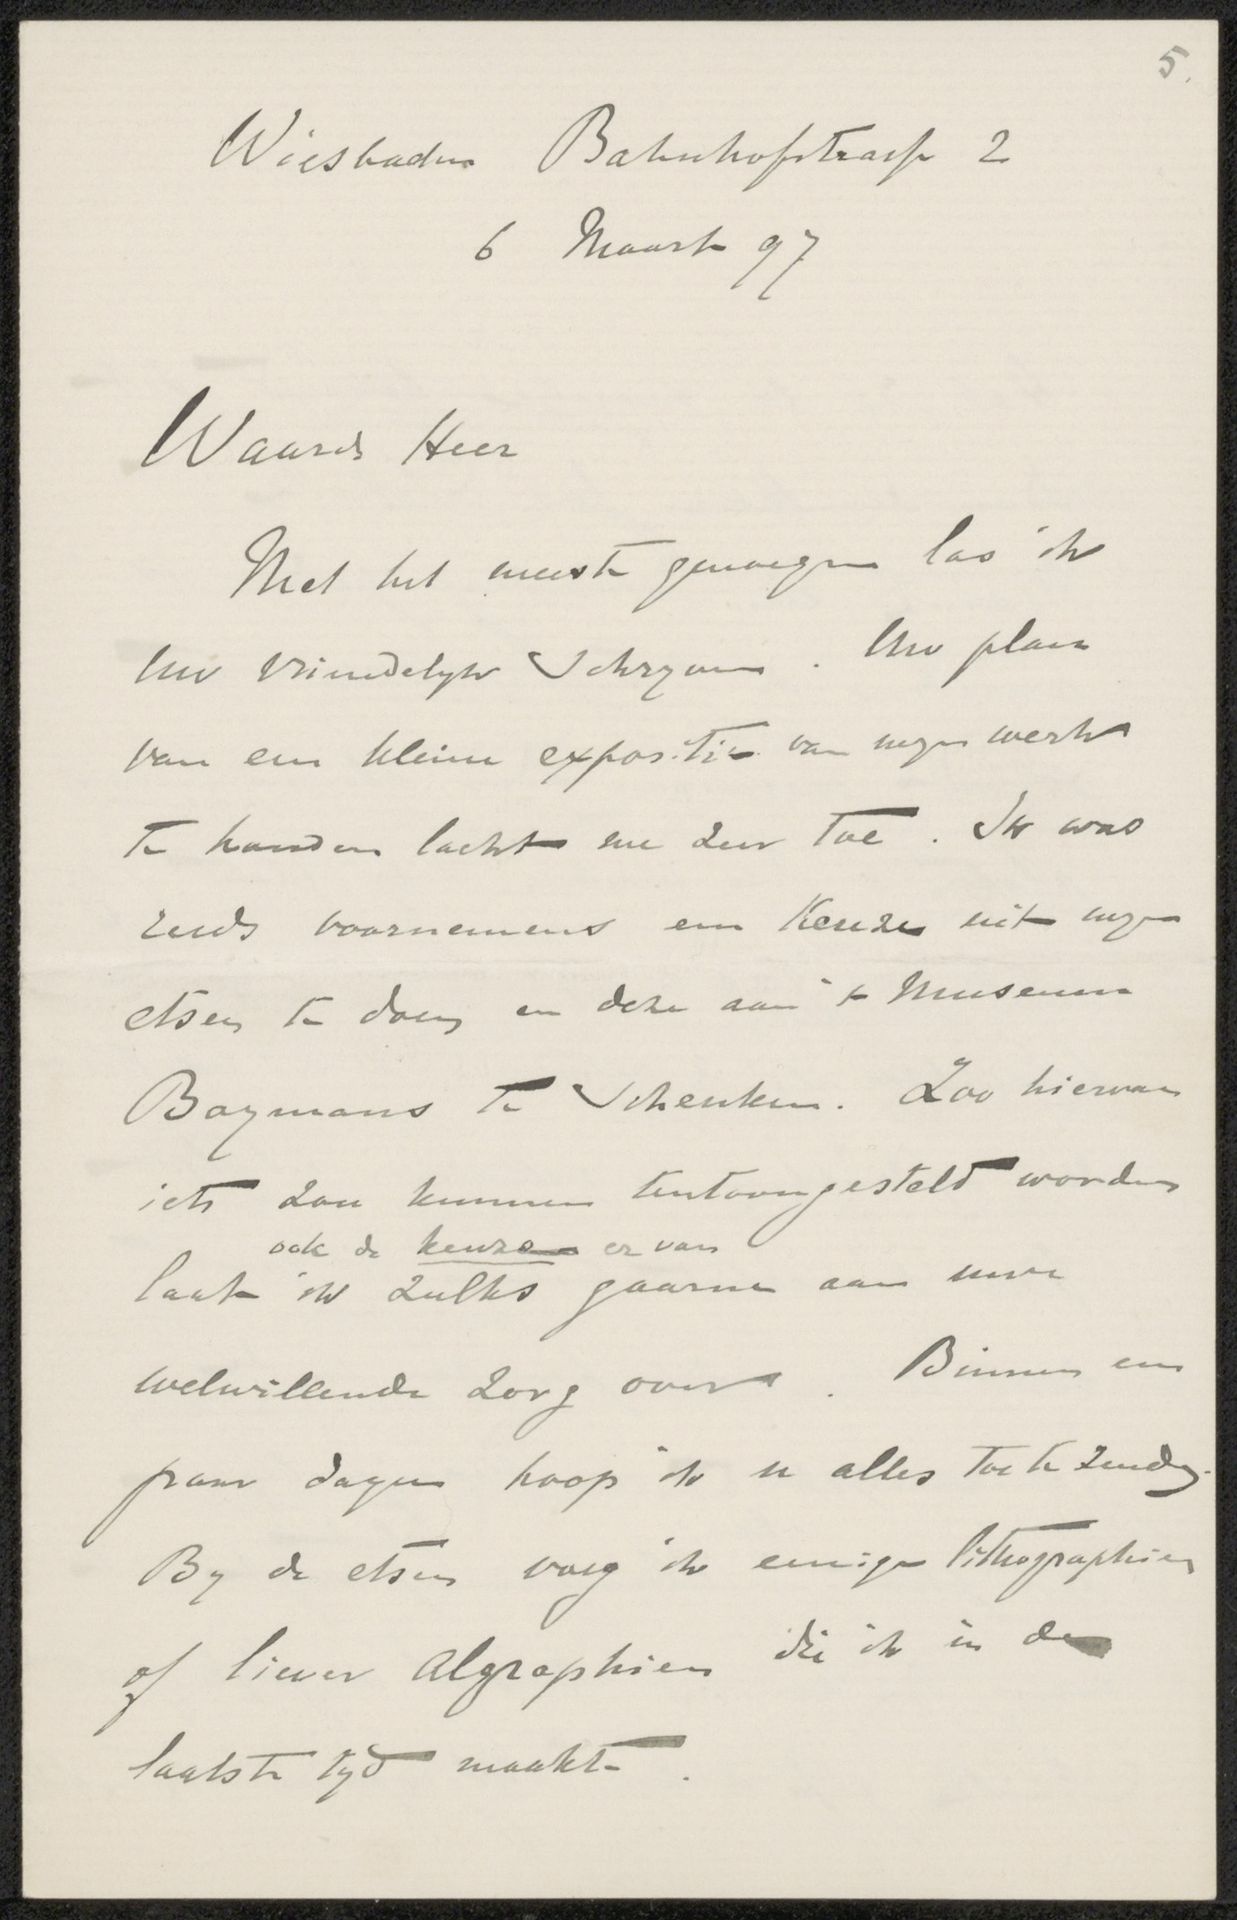 5.
Wiesbaden Bahnhofstrasse 2
6 Maart 97
Waarde Heer
Met het meeste genoegen las ik
Uw vriendelijk schrijven. Uw plan
van een kleine expositie van mijn werk
te houden lacht me zeer toe. Ik was
reeds voornemens een keuze uit mijn
etsen te doen en deze aan 't Museum
Boymans te schenken. Zoo hiervan
iets zou kunnen tentoongesteld worden
ook de keuze er van
laat ik zulks gaarne aan uwe
welwillende zorg over. Binnen een
paar dagen hoop ik u alles toe te zenden.
By de etsen voeg ik eenige lithographien
of liever Algraphien die ik in de
laatste tijd maakte.